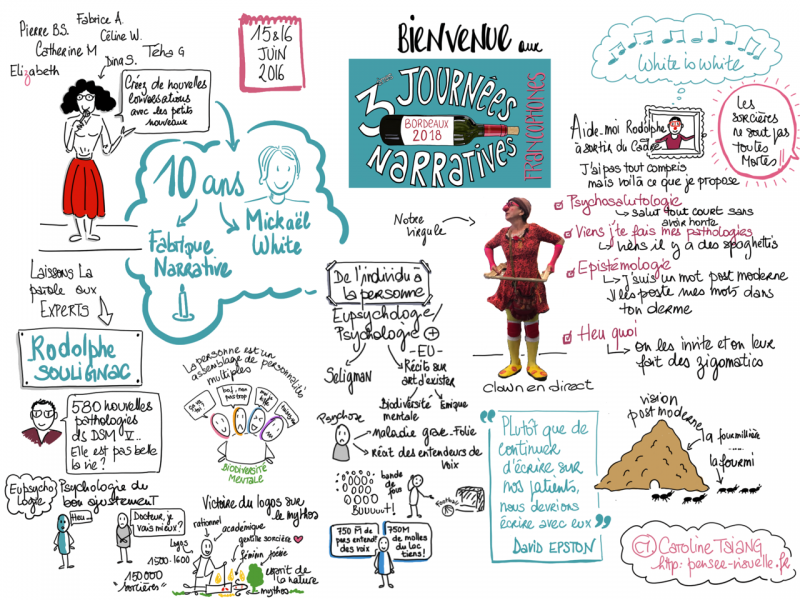 Pierre B.S.
Fabrice A.
Céline W.
Catherine M
Dina S.
Téha G
Elizabeth
Créez de nouvelles
conversations
avec les petits
nouveaux
15 & 16
JUIN
2016
BIENVENUE aux
3 JOURNÉES
BORDEAUX
2018
NARRATIVES
FRANCOPHONES
White is White
Les
sorcières
ne sont pas
toutes
Mortes !!
Aide-moi Rodolphe
à sortir du Cadre
J'ai pas tout compris
mais voilà ce que je propose
Psychosalutologie
salut tout court sans
avoir honte
Viens j'te fais mes pathologies
viens il y a des spaghettis
Epistémologie
J'suis un mot post moderne
J'les poste mes mots dans
ton derme
Heu quoi
on les invite et on leur
fait des zigomatics
10 ans
Fabrique
Narrative
Mickaël
White
Notre
virgule
clown en direct
Laissons La
parole aux
EXPERTS
Rodolphe
SOULIGNAC
580 nouvelles
pathologies
ds DSM V..
Elle est pas belle
la vie ?
Eupsycho
logie
Psychologie du
bon ajustement
Heu...
Docteur, je
vais mieux ?
La personne est un
assemblage de personnalités
multiples
BIODIVERSITÉ
MENTALE
Victoire du logos sur
le mythos
rationnel
académique
gentille sorcière
féminin
poésie
Logos
1500-1600
150 000
"sorcières"
esprit de
la nature
mythos
De l'individu à
la personne
Eupsychologie/
Psychologie +
Seligman
-EU-
Récits sur
art d'exister
Biodiversité
mentale
Emique
Psychose
Maladie grave-Folie
Récit des entendeurs de
voix
bande
de fous
Buuuut !
Football
750 Fr de
pas entendre
des voix
750M
de molles
du lac
tiens !
"Plutôt que de
continuer
d'écrire sur
nos patients,
nous devrions
écrire avec eux"
David EPSTON
vision
post moderne
la fourmilière
la fourmi
Caroline TSIANG
http: pensee-visuelle.fr